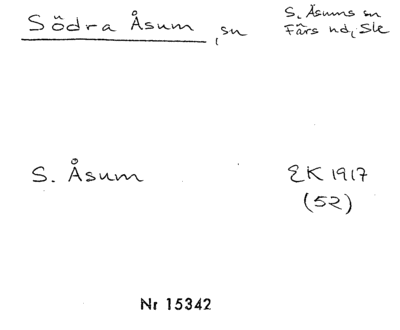 Södra Åsum, sn
S. Åsums sn
Färs hd, Skå
S. Åsum
EK 1917
(52)
Nr 15342